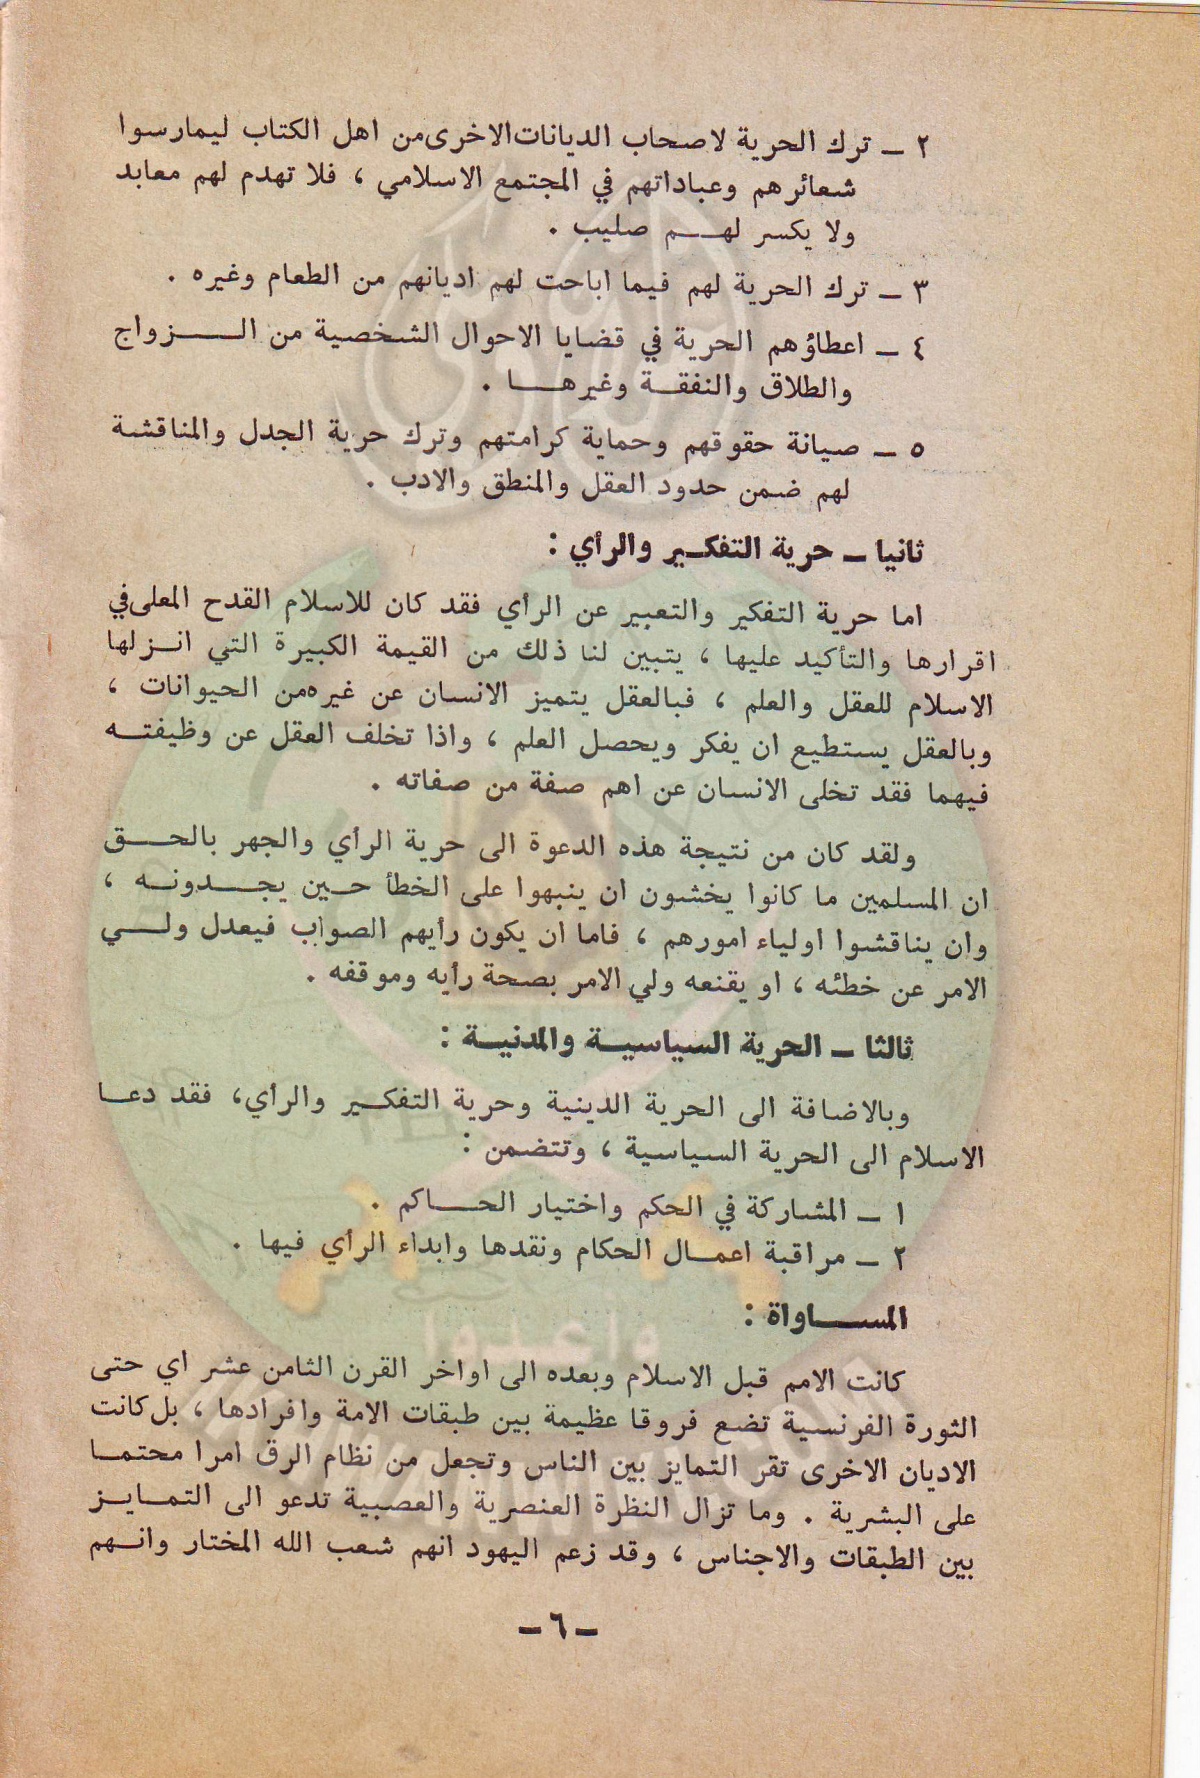 ٢ ــ ترك الحرية لاصحاب الديانات الاخرى من اهل الكتاب ليمارسوا
شعائرهم وعباداتهم في المجتمع الاسلامي ، فلا تهدم لهم معابد
ولا يكسر لهـــم صليب .
٣ ــ ترك الحرية لهم فيما اباحت لهم اديانهم من الطعام وغيره .
٤ ــ اعطاؤهم الحرية في قضايا الاحوال الشخصية من الـــزواج
والطلاق والنفقـــة وغيرهـــا .
٥ ــ صيانة حقوقهم وحماية كرامتهم وترك حرية الجدل والمناقشة
لهم ضمن حدود العقل والمنطق والادب .
ثانيا ــ حرية التفكـير والرأي :
اما حرية التفكير والتعبير عن الرأي فقد كان للاسلام القدح المعلى في
اقرارها والتأكيد عليها ، يتبين لنا ذلك من القيمة الكبيرة التي انـزلها
الاسلام للعقل والعلم ، فبالعقل يتميز الانسان عن غيره من الحيوانات ،
وبالعقل يستطيع ان يفكر ويحصل العلم ، واذا تخلف العقل عن وظيفتـه
فيهما فقد تخلى الانسان عن اهم صفة من صفاته .
ولقد كان من نتيجة هذه الدعوة الى حرية الرأي والجهر بالحـق
ان المسلمين ما كانوا يخشون ان ينبهوا على الخطأ حـين يجـدونـه ،
وان يناقشوا اولياء امورهم ، فاما ان يكون رأيهم الصواب فيعدل ولـي
الامر عن خطئه ، او يقنعه ولي الامر بصحة رأيه وموقفه .
ثالثا ــ الحرية السياسيـة والمدنيـة :
وبالاضافة الى الحرية الدينية وحرية التفكـير والرأي، فقد دعـا
الاسلام الى الحرية السياسية ، وتتضمن :
١ ــ المشاركة في الحكم واختيار الحـاكم .
٢ ــ مراقبة اعمـال الحكام ونقدها وابداء الرأي فيها .
المســـاواة :
كانت الامم قبل الاسلام وبعده الى اواخر القرن الثامن عشر اي حتى
الثورة الفرنسية تضع فروقا عظيمة بين طبقات الامة وافرادها ، بل كانت
الاديان الاخرى تقر التمايز بين الناس وتجعل من نظام الرق امرا محتمـا
على البشرية . وما تزال النظرة العنصرية والعصبية تدعو الى التمـايـز
بين الطبقات والاجناس ، وقد زعم اليهود انهم شعب الله المختار وانـهم
ــ ٦ ــ
واعدوا